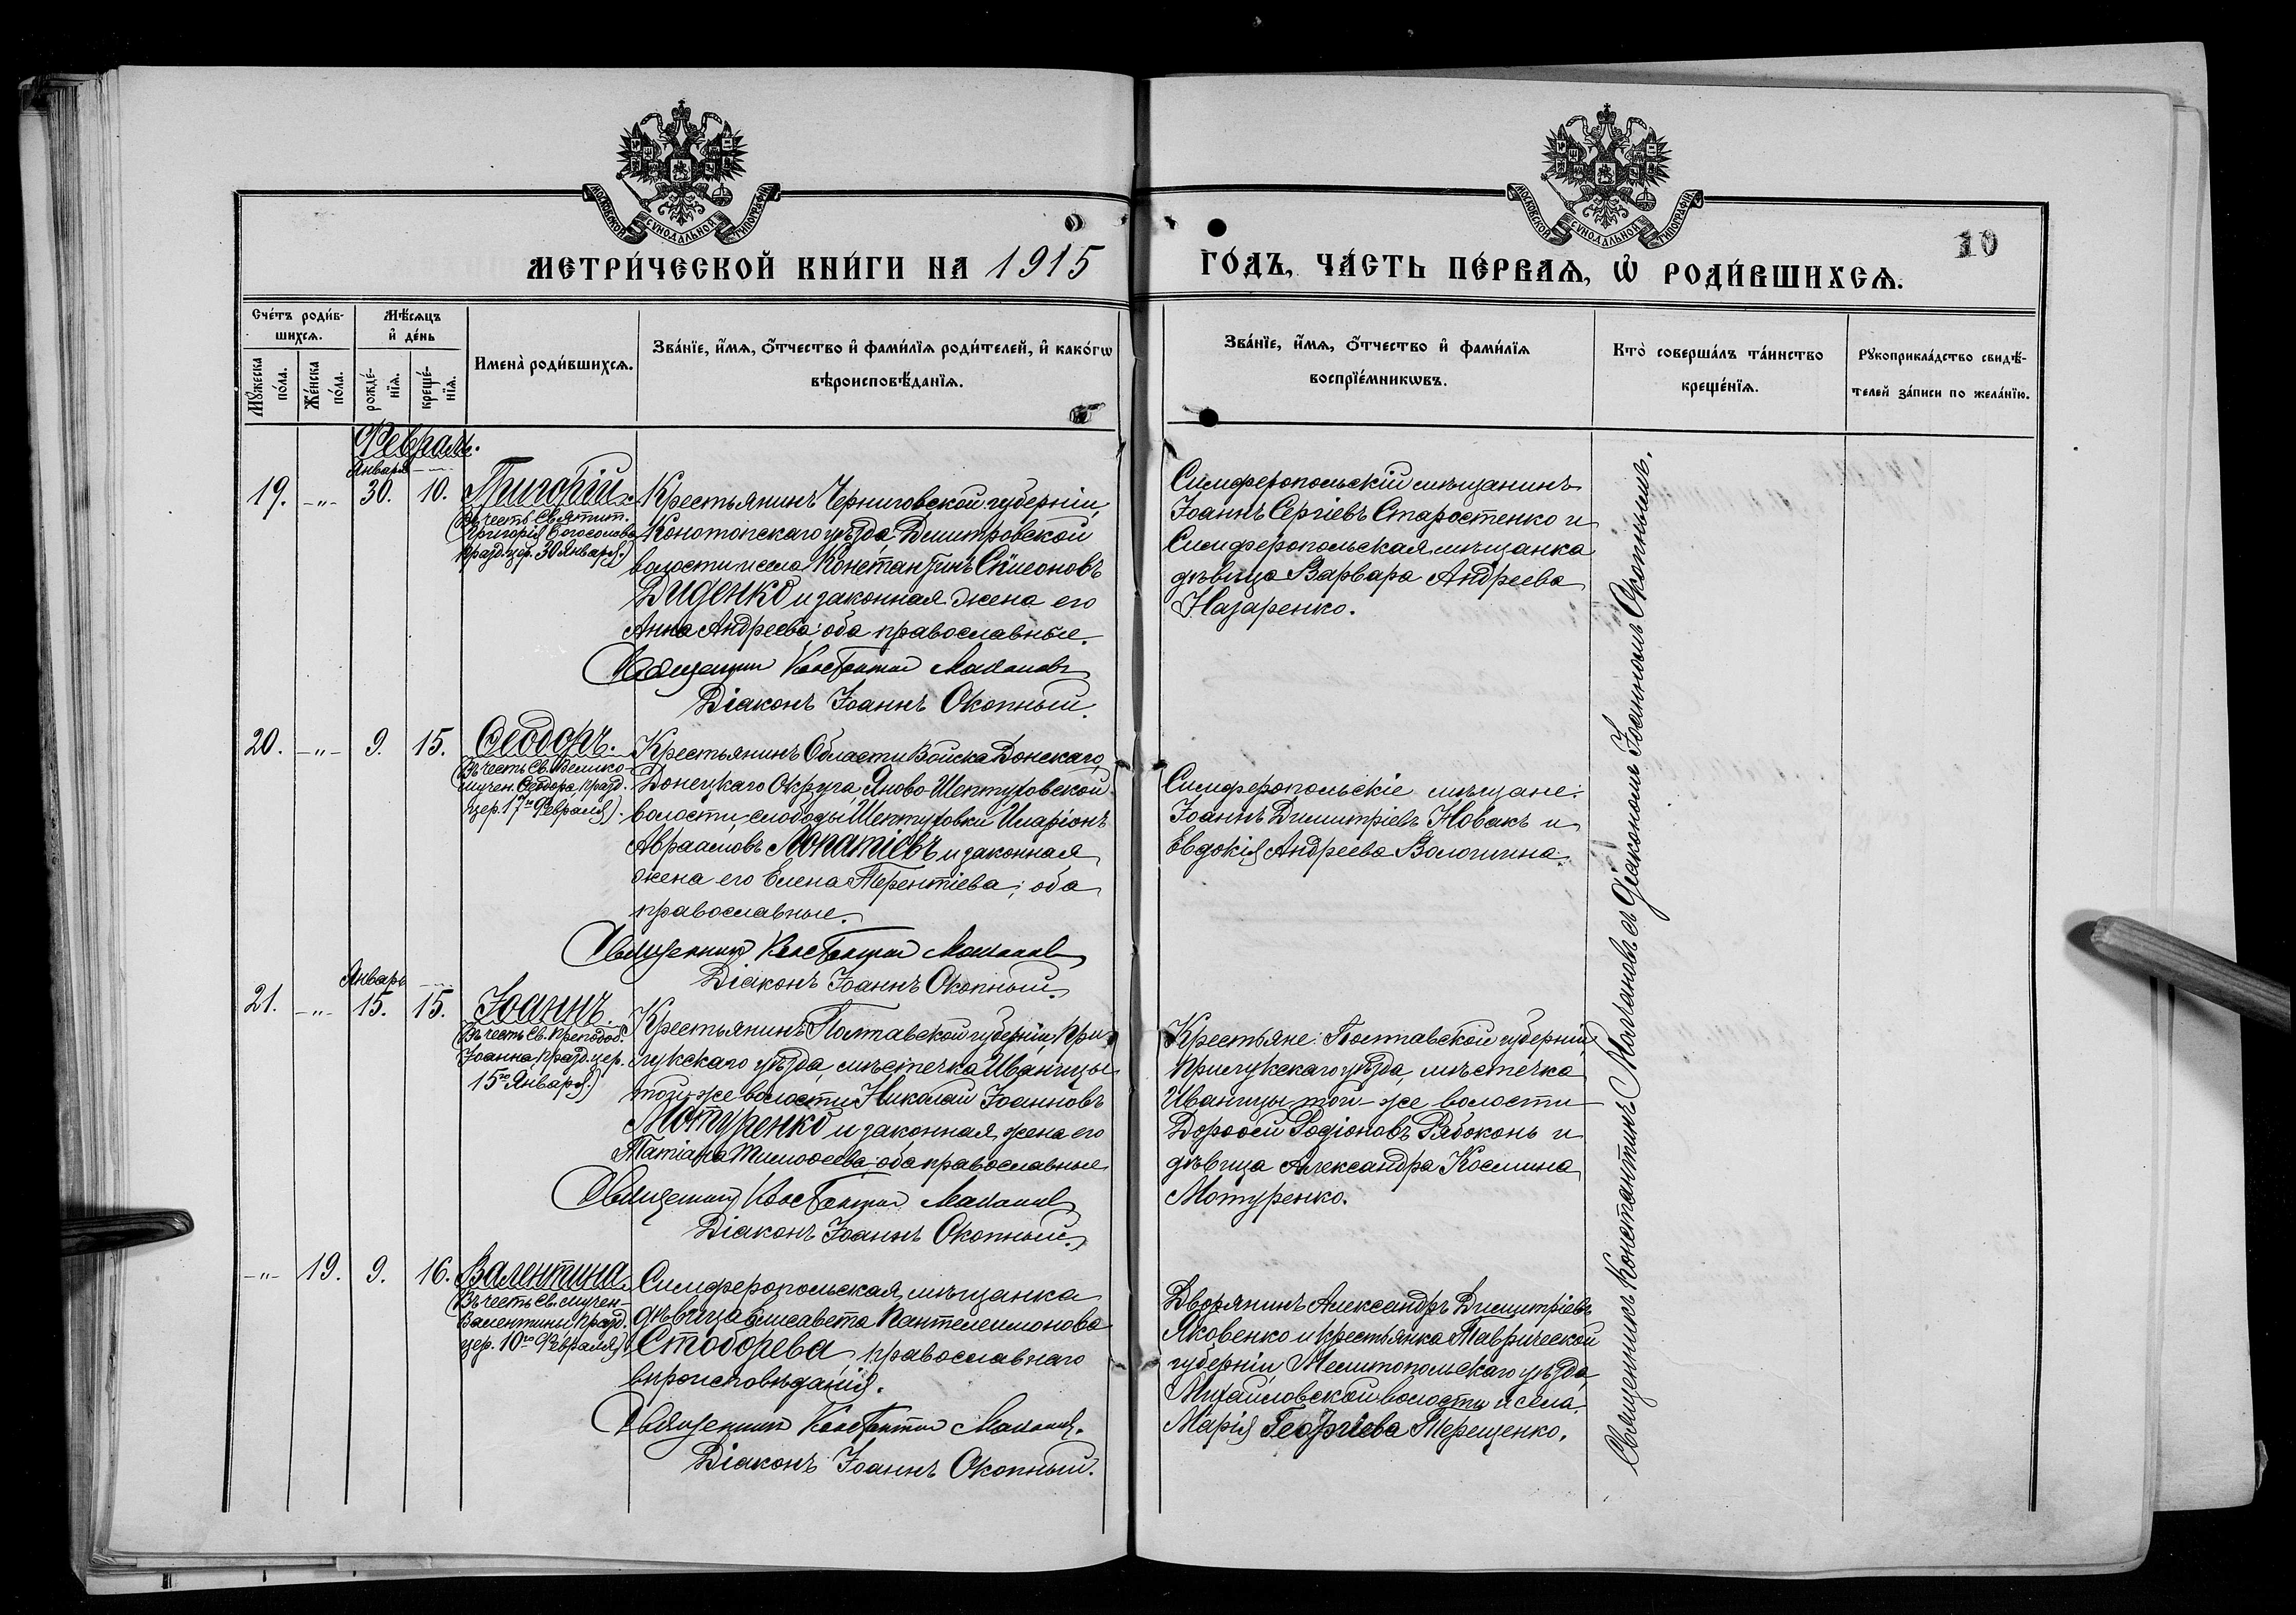 МОСКОВСКОЙ СѴНОДАЛЬНОЙ ТИПОГРАФІИ
МОСКОВСКОЙ СѴНОДАЛЬНОЙ ТИПОГРАФІИ
10
МЕТРИ́ЧЕСКОЙ КНИ́ГИ НА 1915
ГО́ДЪ, ЧА́СТЬ ПЕ́РВАѦ, Ѡ҆ РОДИ́ВШИХСѦ.
Сче́тъ роди́в-
шихсѧ.
Мѣ́сѧцъ
и҆ де́нь
Мꙋ́жеска
по́ла.
Же́нска
по́ла.
рожде́-
нїѧ.
креще́-
нїѧ.
Имена̀ роди́вшихсѧ.
Зва́нїе, и҆́мѧ, ѻ҆́тчество и҆ фами́лїѧ роди́телей, и҆ како́гѡ
вѣроисповѣ́данїѧ.
Зва́нїе, и҆́мѧ, ѻ҆́тчество и҆ фами́лїѧ
воспрїе́мникѡвъ.
Кто̀ соверша́лъ та́инство
креще́нїѧ.
Рꙋкоприкла́дство свидѣ́-
телей за́писи по жела́нїю.
Февраль.
Января
19. -"- 30. 10. Григорій
(Въ честь Святит.
Григорія Богослова
празд. цер. 30 января.)
Крестьянинъ Черниговской губерніи,
Конотопскаго уѣзда, Дмитровской
волости и села Константинъ Симеоновъ
Диденко и законная жена его
Анна Андреева; оба православные.
Священникъ Константинъ Маклановъ
Діаконъ Іоаннъ Окопный.
Симферопольскій мѣщанинъ
Іоаннъ Сергіевъ Старостенко и
Симферопольская мѣщанка
дѣвица Варвара Андреева
Назаренко.
20. -"- 9. 15. Ѳеодоръ.
(Въ честь Св. Велико-
мучен. Ѳеодора, празд.
цер. 17го Февраля).
Крестьянинъ Области Войска Донскаго,
Донецкаго Округа, Яново-Шептуховской
волости, слободы Шептуховки Иларіонъ
Авраамовъ Лопатіевъ и законная
жена его Елена Терентіева; оба
православные.
Священникъ Константинъ Маклановъ
Діаконъ Іоаннъ Окопный.
Симферопольскіе мѣщане:
Іоаннъ Димитріевъ Новакъ и
Евдокія Андреева Волошина.
Январь
21. -"- 15. 15. Іоаннъ.
(Въ честь Св. Преподоб.
Іоанна празд. цер.
15го Января.)
Крестьянинъ Полтавской губерніи, При-
лукскаго уѣзда, мѣстечка Иваницы
той-же волости Николай Іоанновъ
Мотуренко и законная жена его
Татіана Тимоѳеева; оба православные
Священникъ Константинъ Маклановъ
Діаконъ Іоаннъ Окопный.
Крестьяне: Полтавской губерніи,
Прилукскаго уѣзда, мѣстечка
Иваницы той-же волости
Дороѳей Родіоновъ Рябоконь и
дѣвица Александра Космина
Мотуренко.
-"- 19. 9. 16. Валентина.
(Въ честь Св. мучен-
Валентины празд.
цер. 10го Февраля)
Симферопольская мѣщанка
дѣвица Елисавета Пантелеимонова
Стоборева, православнаго
вѣроисповѣданія.
Священникъ Константинъ Маклановъ.
Діаконъ Іоаннъ Окопный.
Дворянинъ Александръ Димитріевъ
Яковенко и крестьянка Таврической
губерніи, Мелитопольскаго уѣзда,
Михайловской волости и села
Марія Георгіева Терещенко.
Священникъ Константинъ Маклановъ съ діакономъ Іоанномъ Окопнымъ.